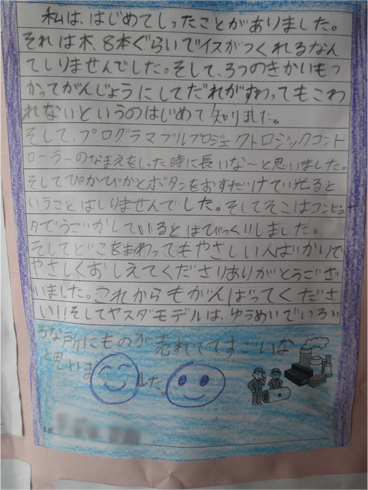 私は、はじめてしったことがありました。
それは木、8本ぐらいでイスがつくれるなん
てしりませんでした。そして、3つのきかいもつ
かってがんじょうにしてだれがすわってもこわ
れないというのはじめて知りました。
そして、プログラマブルプロジェクトロジックコント
ローラーのなまえをしった時に長いなーと思いました。
そしてぴかぴかとボタンをおすだけで
いうことはしりませんでした。そしてそこはコンピュ
タでうごかしているとはびっくりしました。
そしてどこをまわってもやさしい人ばかりで
やさしくおしえてくださりありがとうござ
いました。これからもがんばってくださ
い!!そしてヤスダモデルは、ゆうめいでいろい
ろな所にものが売れててすごいな
と思いま した。